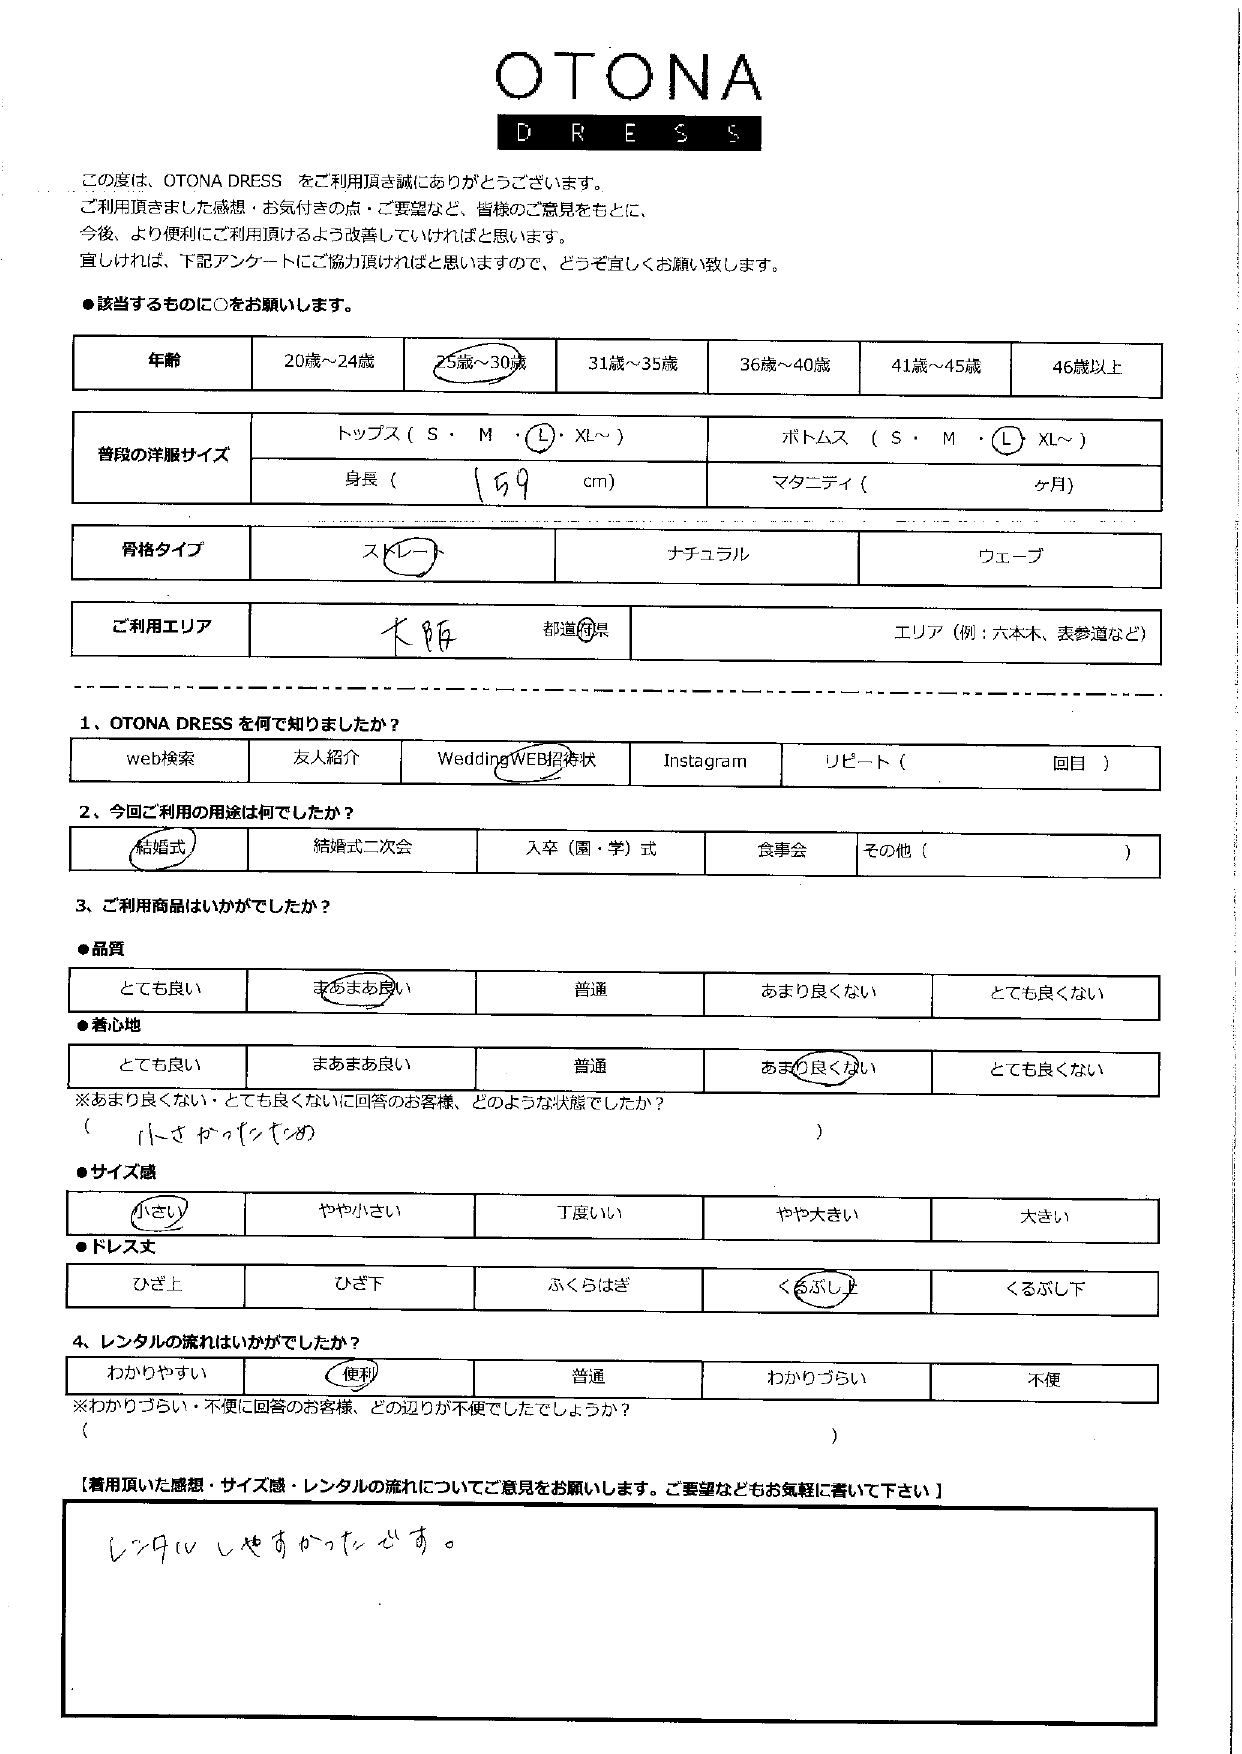 OTONA
DRESS
この度は、OTONA DRESS をご利用頂き誠にありがとうございます。
ご利用頂きました感想・お気付きの点・ご要望など、皆様のご意見をもとに、
今後、より便利にご利用頂けるよう改善していければと思います。
宜しければ、下記アンケートにご協力頂ければと思いますので、どうぞ宜しくお願い致します。
●該当するものに○をお願いします。
年齢 20歳～24歳 25歳～30歳 31歳～35歳 36歳～40歳 41歳～45歳 46歳以上
普段の洋服サイズ トップス ( S ・ M ・ L ・ XL～ ) ボトムス ( S ・ M ・ L ・ XL～ )
身長 ( 159 cm) マタニティ ( ヶ月)
骨格タイプ ストレート ナチュラル ウェーブ
ご利用エリア 大阪 都道府県 エリア（例：六本木、表参道など）
1、OTONA DRESS を何で知りましたか？
web検索 友人紹介 WeddingWEB招待状 Instagram リピート ( 回目 )
2、今回ご利用の用途は何でしたか？
結婚式 結婚式二次会 入卒（園・学）式 食事会 その他 ( )
3、ご利用商品はいかがでしたか？
●品質
とても良い まあまあ良い 普通 あまり良くない とても良くない
●着心地
とても良い まあまあ良い 普通 あまり良くない とても良くない
※あまり良くない・とても良くないに回答のお客様、どのような状態でしたか？
( 小さかったため )
●サイズ感
小さい やや小さい 丁度いい やや大きい 大きい
●ドレス丈
ひざ上 ひざ下 ふくらはぎ くるぶし上 くるぶし下
4、レンタルの流れはいかがでしたか？
わかりやすい 便利 普通 わかりづらい 不便
※わかりづらい・不便に回答のお客様、どの辺りが不便でしたでしょうか？
( )
【着用頂いた感想・サイズ感・レンタルの流れについてご意見をお願いします。ご要望などもお気軽に書いて下さい 】
レンタルしやすかったです。